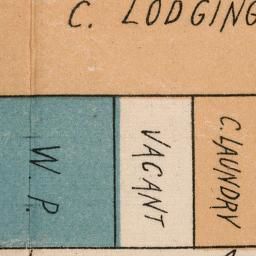 C. LODGING
W. P.
VACANT
C. LAUNDRY